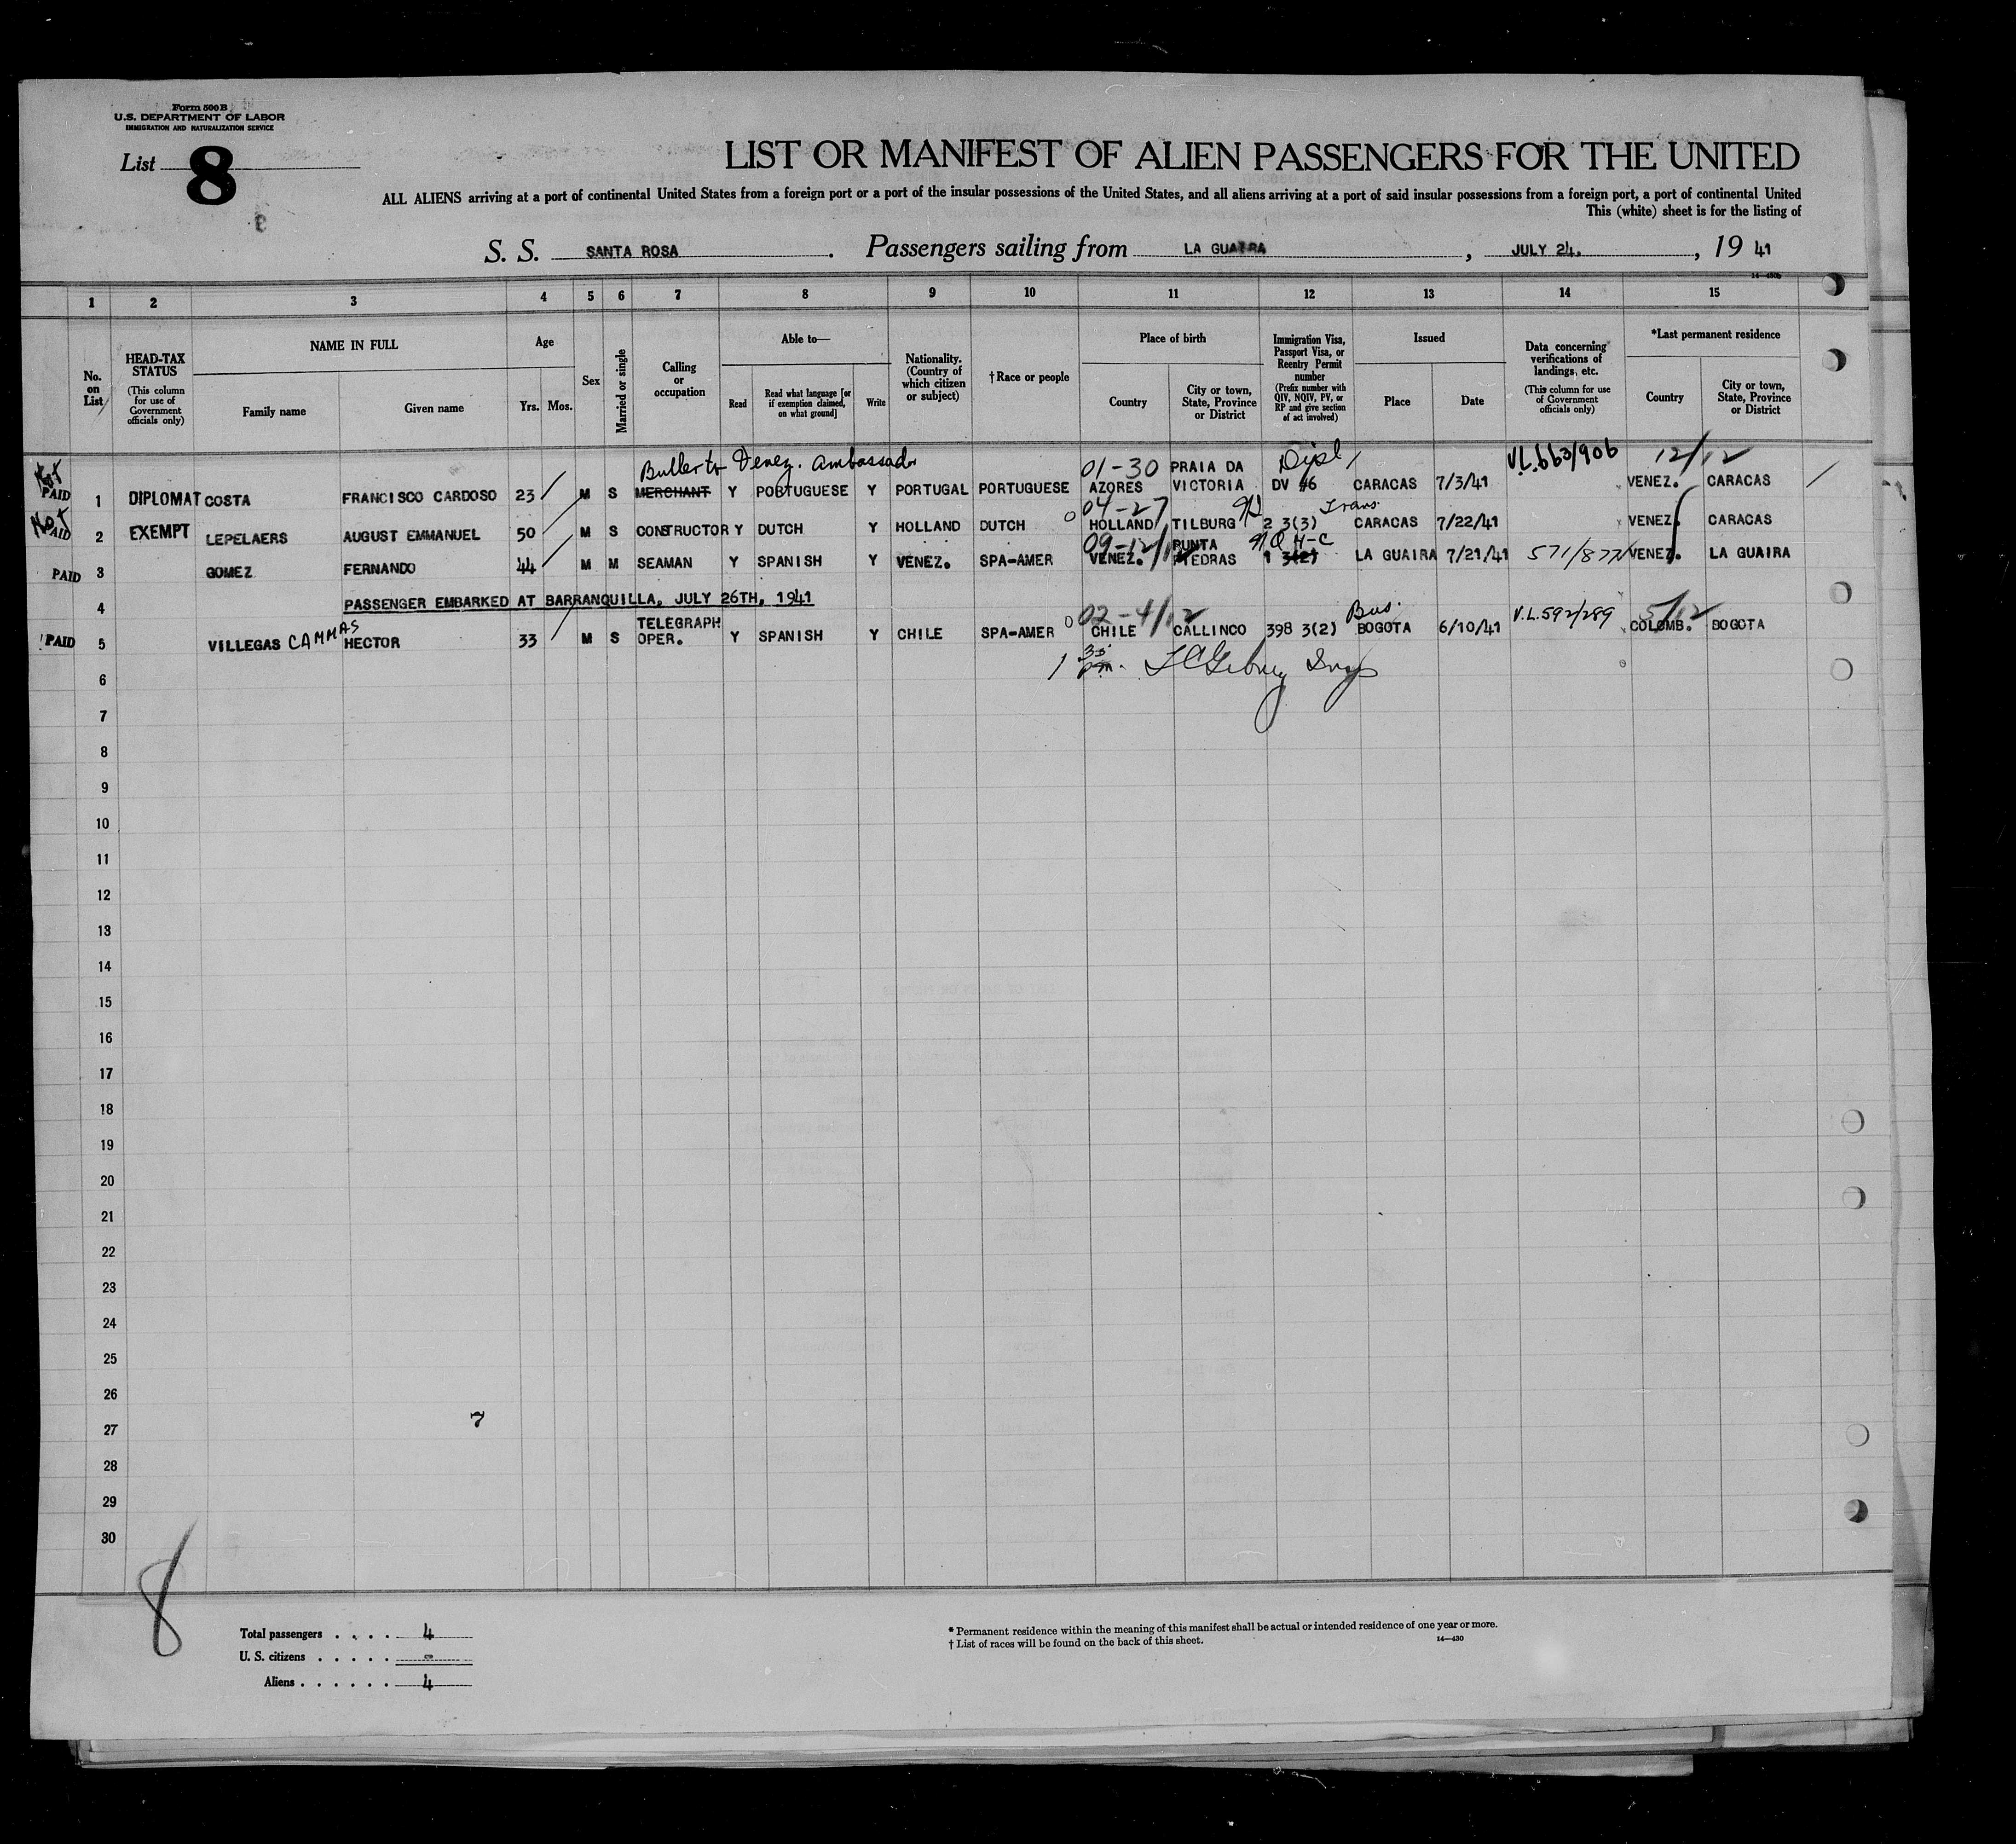 Form 500 B
U.S. DEPARTMENT OF LABOR
IMMIGRATION AND NATURALIZATION SERVICE
List 8
LIST OR MANIFEST OF ALIEN PASSENGERS FOR THE UNITED
ALL ALIENS arriving at a port of continental United States from a foreign port or a port of the insular possessions of the United States, and all aliens arriving at a port of said insular possessions from a foreign port, a port of continental United
This (white) sheet is for the listing of
S. S. SANTA ROSA. Passengers sailing from LA GUAIRA, JULY 24., 19 41
1 2 3 4 5 6 7 8 9 10 11 12 13 14 15
No. on List
HEAD-TAX STATUS (This column for use of Government officials only)
NAME IN FULL
Family name Given name
Age
Yrs. Mos.
Sex
Married or single
Calling or occupation
Able to—
Read Read what language [or if exemption claimed, on what ground] Write
Nationality. (Country of which citizen or subject)
†Race or people
Place of birth
Country City or town, State, Province or District
Immigration Visa, Passport Visa, or Reentry Permit number (Prefix number with QIV, NQIV, PV, or RP and give section of act involved)
Issued
Place Date
Data concerning verifications of landings, etc. (This column for use of Government officials only)
*Last permanent residence
Country City or town, State, Province or District
Butler to Venez. Ambassador 01-30 Dipl V.L.663/906 12/12
Not PAID 1 DIPLOMAT COSTA FRANCISCO CARDOSO 23 M S MERCHANT Y PORTUGUESE Y PORTUGAL PORTUGUESE AZORES PRAIA DA VICTORIA DV #6 CARACAS 7/3/41 VENEZ. CARACAS
04-27 Trans
Not PAID 2 EXEMPT LEPELAERS AUGUST EMMANUEL 50 M S CONSTRUCTOR Y DUTCH Y HOLLAND DUTCH HOLLAND TILBURG 2 3(3) CARACAS 7/22/41 VENEZ. CARACAS
09-12/12
PAID 3 GOMEZ FERNANDO 44 M M SEAMAN Y SPANISH Y VENEZ. SPA-AMER VENEZ. PUNTA PIEDRAS 1 3(2) LA GUAIRA 7/21/41 VENEZ. LA GUAIRA
4 PASSENGER EMBARKED AT BARRANQUILLA, JULY 26TH, 1941
02-4/12 Bus. V.L.592/289 5/12
PAID 5 VILLEGAS CAMMAS HECTOR 33 M S TELEGRAPH OPER. Y SPANISH Y CHILE SPA-AMER CHILE CALLINCO 398 3(2) BOGOTA 6/10/41 COLOMB. BOGOTA
6
7
8
9
10
11
12
13
14
15
16
17
18
19
20
21
22
23
24
25
26
27
28
29
30
8
Total passengers . . . . 4
U. S. citizens . . . . . -
Aliens . . . . . . 4
* Permanent residence within the meaning of this manifest shall be actual or intended residence of one year or more.
† List of races will be found on the back of this sheet. 14—430